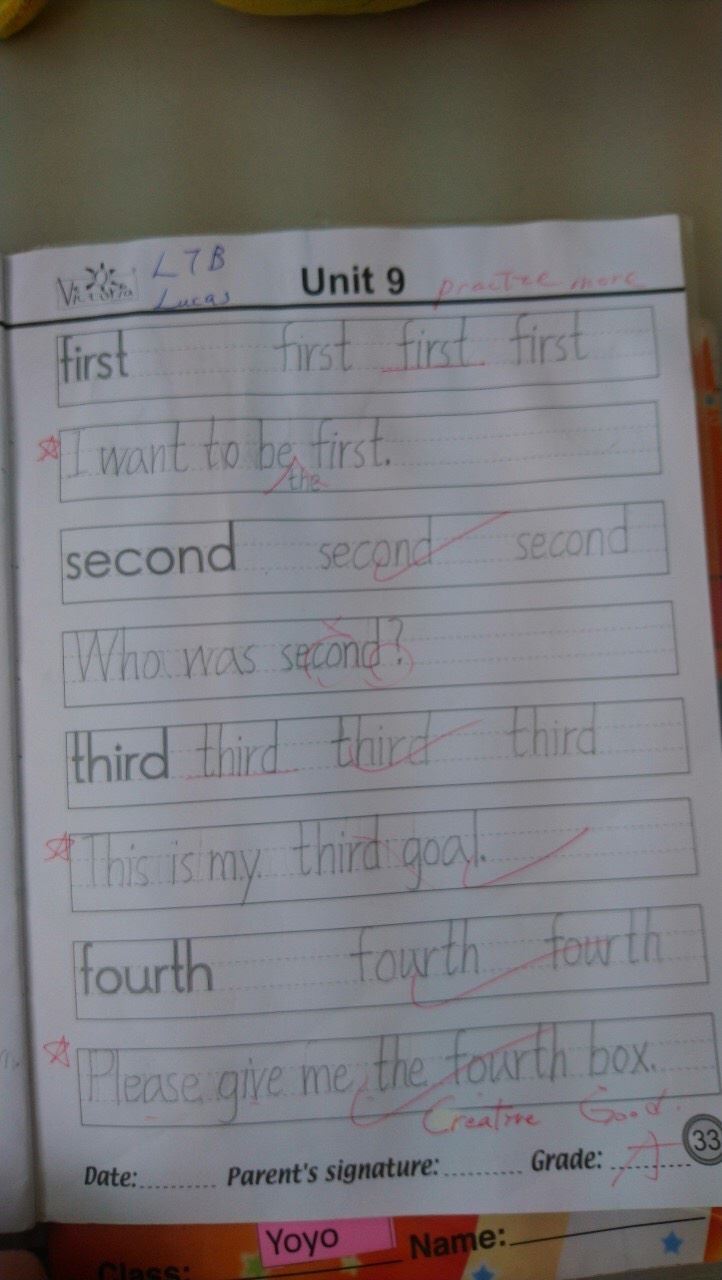 Victoria L7B Unit 9 practice more
Lucas
first first first first
I want to be first.
the
second second second
Who was second?
third third third third
This is my third goal.
fourth fourth fourth
Please give me the fourth box.
Creative Good.
Date:......... Parent's signature:......... Grade:......... A 33
Yoyo Name:
Class: